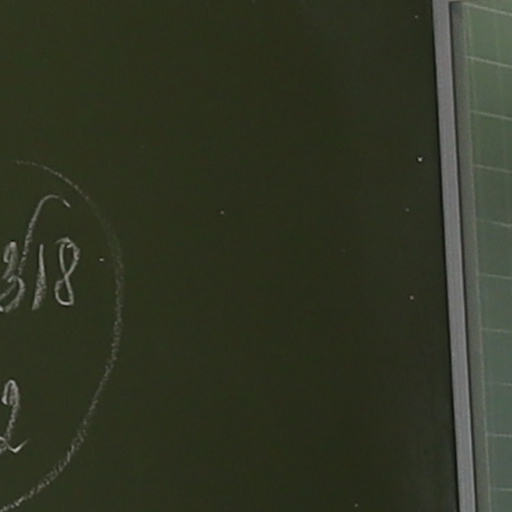 3√18
2